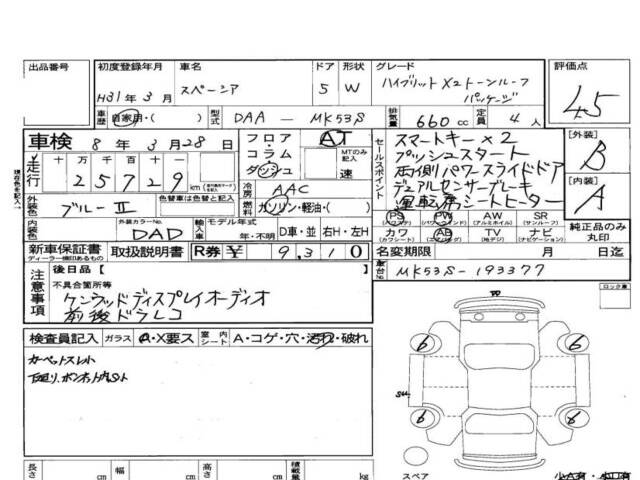 出品番号
初度登録年月 車名 ドア 形状 グレード 評価点
H31年3月 スペーシア 5 W ハイブリットX2トーンルーフパッケージ 4.5
車歴 自家用・( ) 型式 DAA - MK53S 排気量 660cc 定員 4人
車検 8年3月28日
フロア・コラム ダッシュ AT MTのみ記入 速
セールスポイント
スマートキー×2
プッシュスタート
両側パワースライドドア
デュアルセンサーブレーキ
運転席シートヒーター
[外装] B
[内装] A
走行 十万千百十一
25729 km
冷房 AAC
現在色を記入
外装色 ブルーⅡ 色替車は色替と記入 燃料 ガソリン・軽油・( )
PS PW AW SR
(パワステ) (パワーウィンド) (アルミホイル) (サンルーフ)
内装色 外装カラーNo. DAD 輸入車 モデル年式 年・不明 D車・並 右H・左H
カワ AB TV ナビ
(カワシート) (エアバッグ) (地デジ) (ナビゲーション)
純正品のみ丸印
新車保証書 取扱説明書 R券 ¥ 9,310
ディーラー捺印あるもの
名変期限 月 日迄
車台No. MK53S-193377
注意事項 後日品【 】
不具合箇所等
ケンウッドディスプレイオーディオ
前後ドラレコ
ロック車
検査員記入 ガラス A・X要ス 室内シート A・コゲ・穴・汚れ・破れ
カーペットスレ小
下廻り、ボンネット内サビ
6 6
6 6
スペア
長さ cm 幅 cm 高さ cm 積載量 kg